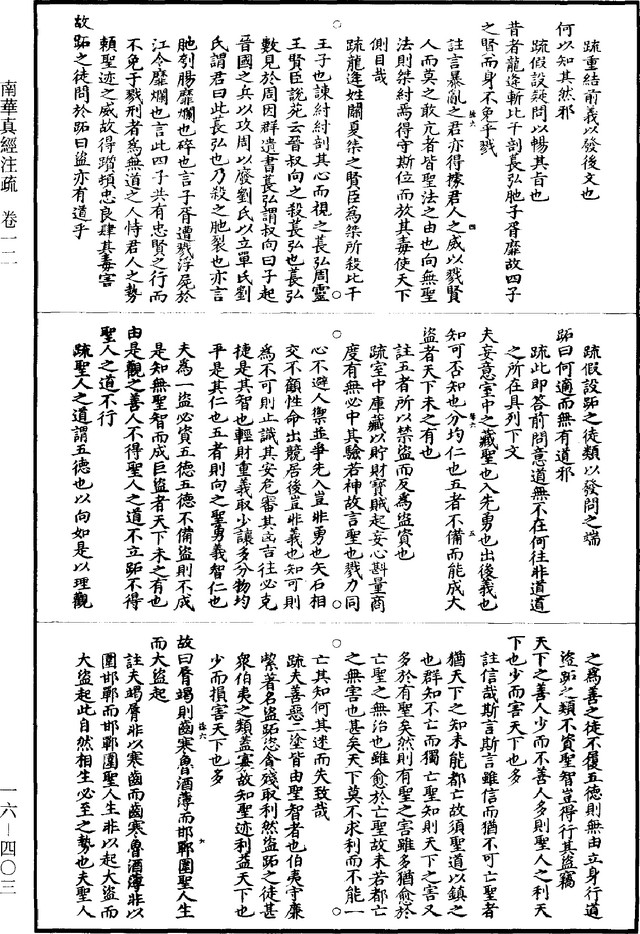 疏重結前義以發後文也
何以知其然邪
疏假設疑問以暢其旨也
昔者龍逢斬比干剖萇弘胣子胥靡故四子
之賢而身不免乎戮
註言暴亂之君亦得據君人之威以戮賢
人而莫之敢亢者皆聖法之由也向無聖
法則桀紂焉得守斯位而放其毒使天下
側目哉
疏龍逢姓關夏桀之賢臣爲桀所殺比干
王子也諫紂紂剖其心而視之萇弘周靈
王賢臣說苑云晉叔向之殺萇弘也萇弘
數見於周因群遺書萇弘謂叔向曰子起
晉國之兵以攻周以廢劉氏以立單氏劉
氏謂君曰此萇弘也乃殺之胣裂也亦言
胣刳腸靡爛也碎也言子胥遭戮浮屍於
江令靡爛也言此四子共有忠賢之行而
不免于戮刑者爲無道之人恃君人之勢
賴聖迹之威故得躓頓忠良肆其毒害
故跖之徒問於跖曰盜亦有道乎
疏假設跖之徒類以發問之端
跖曰何適而無有道邪
疏此即答前問意道無不在何往非道道
之所在具列下文
夫妄意室中之藏聖也入先勇也出後義也
知可否知也分均仁也五者不備而能成大
盜者天下未之有也
註五者所以禁盜而反爲盜資也
疏室中庫藏以貯財寶賊起妄心斟量商
度有無必中其驗若神故言聖也戮力同
心不避人禦並爭先入豈非勇也矢石相
交不顧性命出競居後豈非義也知可則
爲不可則止識其安危審其凶吉往必克
捷是其智也輕財重義取少讓多分物均
平是其仁也五者則向之聖勇義智仁也
夫爲一盜必資五德五德不備盜則不成
是知無聖智而成巨盜者天下未之有也
由是觀之善人不得聖人之道不立跖不得
聖人之道不行
疏聖人之道謂五德也以向如是以理觀
之爲善之徒不履五德則無由立身行道
盜跖之類不資聖智豈得行其盜竊
天下之善人少而不善人多則聖人之利天
下也少而害天下也多
註信哉斯言斯言雖信而猶不可亡聖者
猶天下之知未能都亡故須聖道以鎮之
也群知不亡而獨亡聖知則天下之害又
多於有聖矣然則有聖之害雖多猶愈於
亡聖之無治也雖愈於亡聖故未若都亡
之無害也甚矣天下莫不求利而不能一
亡其知何其迷而失致哉
疏夫善惡二塗皆由聖智者也伯夷守廉
絜著名盜跖恣貪殘取利然盜跖之徒甚
衆伯夷之類蓋寡故知聖迹利益天下也
少而損害天下也多
故曰脣竭則齒寒魯酒薄而邯鄲圍聖人生
而大盜起
註夫竭脣非以寒齒而齒寒魯酒薄非以
圍邯鄲而邯鄲圍聖人生非以起大盜而
大盜起此自然相生必至之勢也夫聖人
南華真經注疏 卷一二
一六—四〇三